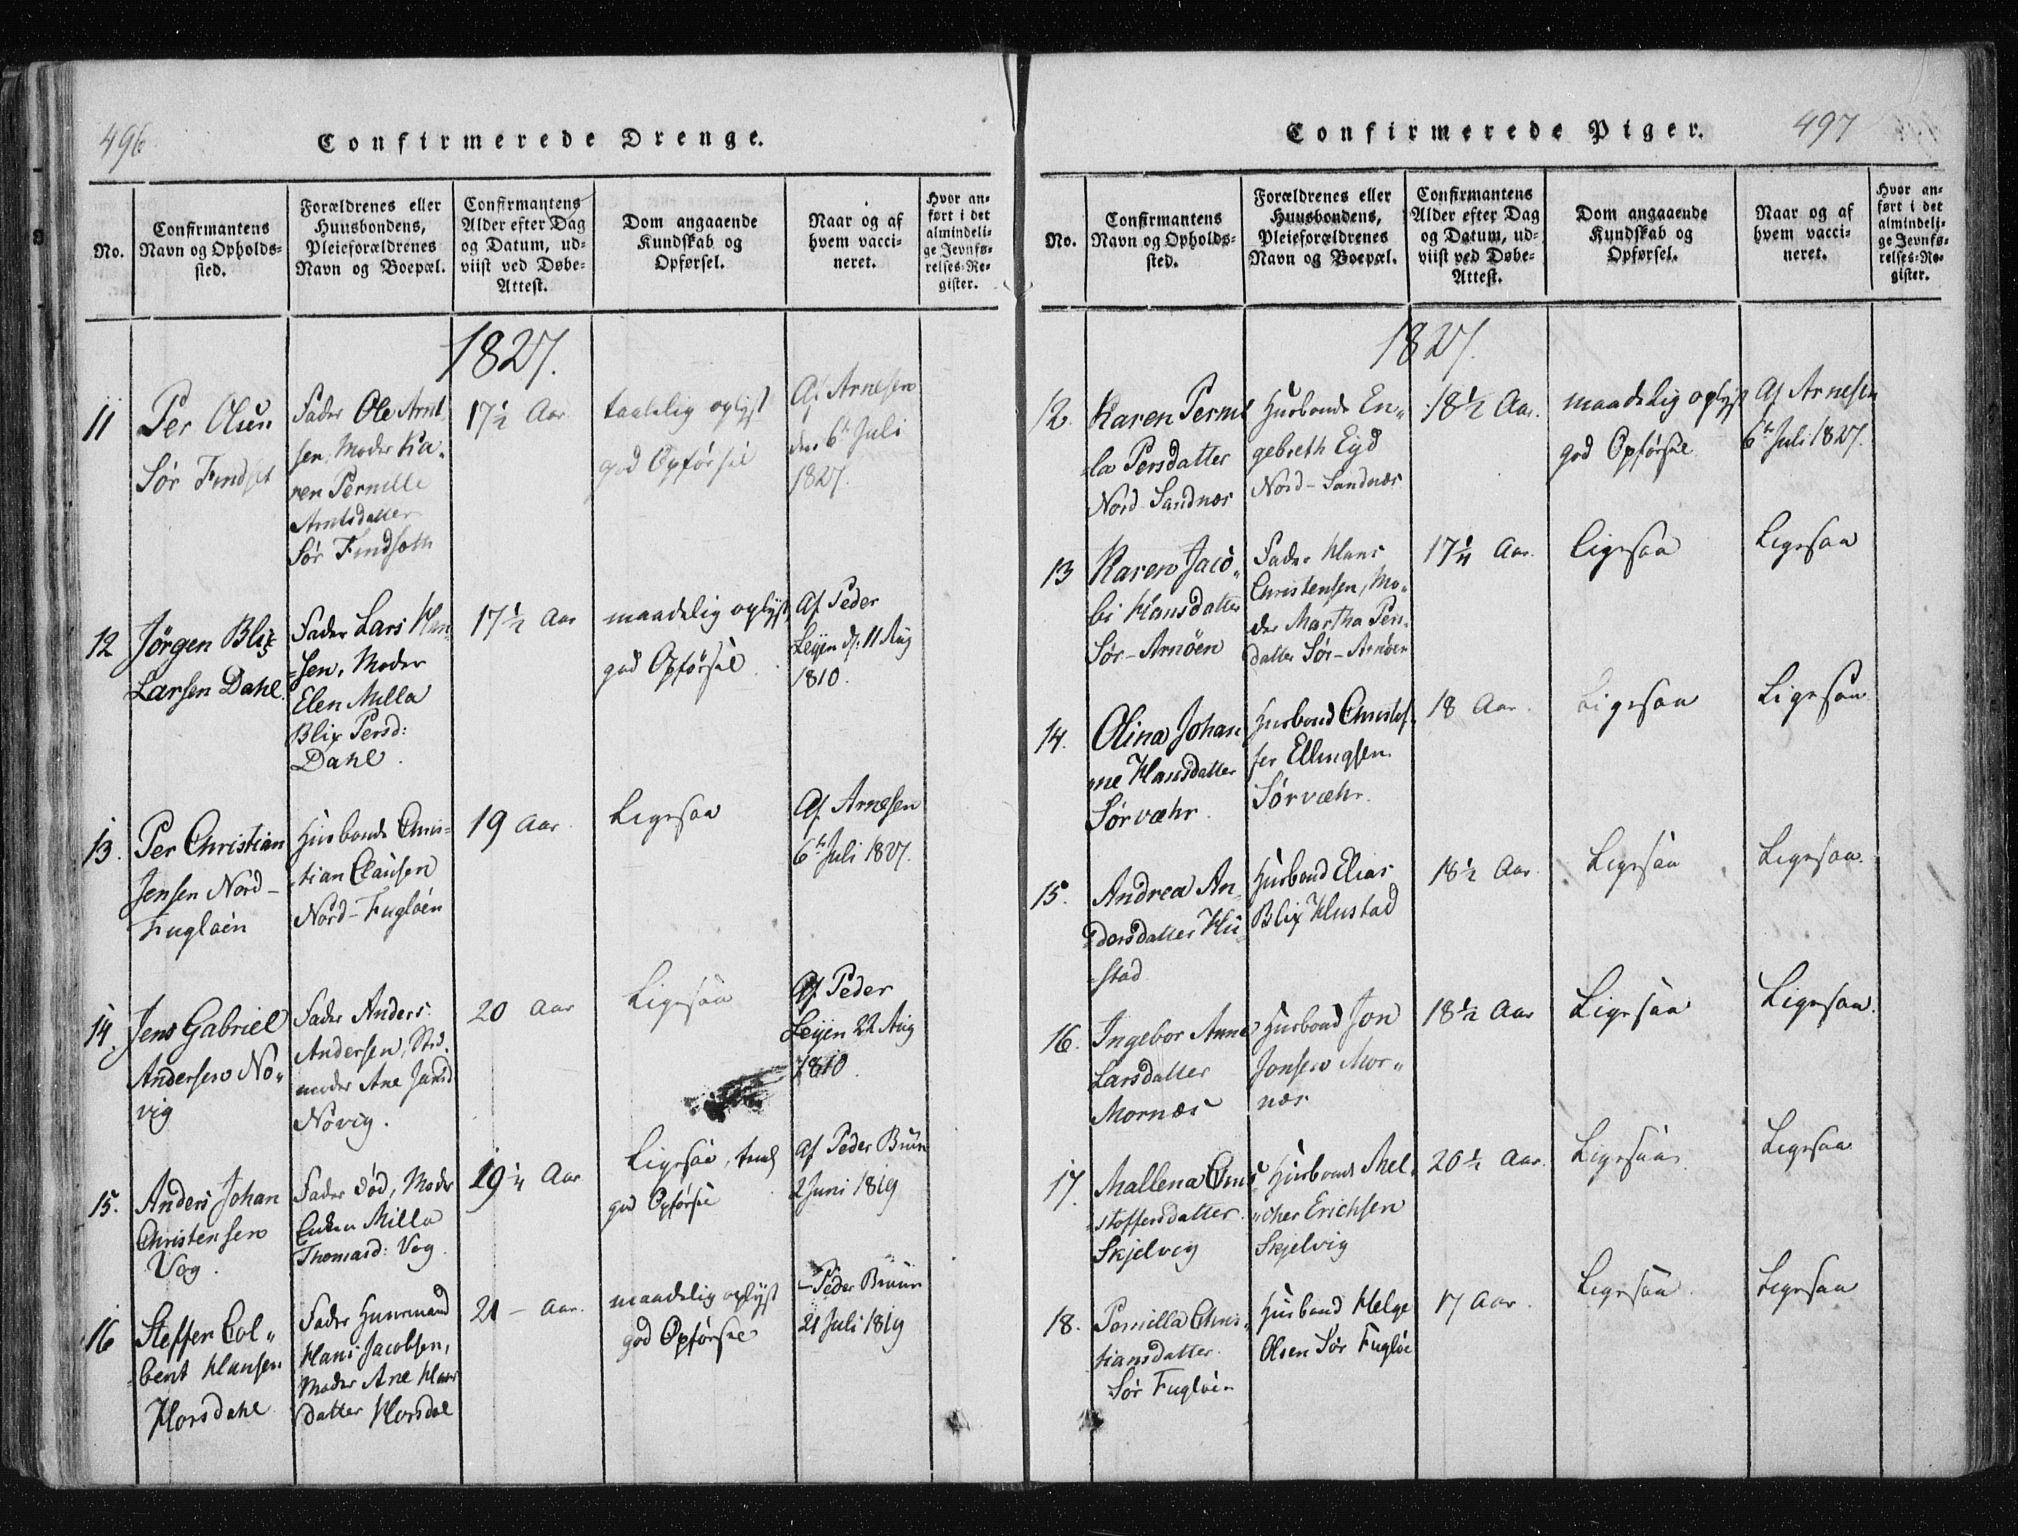 496
Confirmerede Drenge.
No.
Confirmantens
Navn og Opholds-
sted.
Forældrenes eller
Huusbondens,
Pleieforældrenes
Navn og Boepæl.
Confirmantens
Alder efter Dag
og Datum, ud-
viist ved Døbe-
Attest.
Dom angaaende
Kundskab og
Opførsel.
Naar og af
hvem vacci-
neret.
Hvor an-
ført i det
almindeli-
ge Jevnfø-
relses-Re-
gister.
1827.
11
Per Olsen
Sør Findset
Fader Ole Arnt
sen, Moder Ka-
ren Pernille
Arntsdatter
Sør Findseth
17 1/2 Aar
taalelig oplyst
god Opførsel
Af Arnesen
den 6te Juli
1827.
12
Jørgen Blix
Larsen Dahl
Fader Lars Han
-sen, Moder
Elen Milla
Blix Persd:
Dahl.
17 1/2 Aar
maadelig oplyst,
god Opførsel
Af Peder
Leyen d. 11 Aug
1810.
13.
Per Christian
Jensen Nord-
Fugløen
Husbonde Chris-
tian Clausen
Nord-Fugløen
19 Aar
Ligesaa
Af Arnesen
6te Juli 1827.
14.
Jens Gabriel
Andersen No-
vig
Fader Anders
Andersen, Sted
moder Ane Jansd
Novig.
20 Aar
Ligesaa
Af Peder
Leyen 22 Aug
1810.
15.
Anders Johan
Christensen
Vog.
Fader død, Moder
Milla
Thomasd: Vog.
19 1/4 Aar
Ligesaa,
god Opførsel
Af Peder Bruun
2 Juni 1819
16
Steffen Col-
bent Hansen
Horsdahl
Fader Huusmand
Hans Jacobsen,
Moder Ane Hans
datter Horsdal
21 - Aar.
maadelig oplyst
god Opførsel
- Peder Bruun
21 Juli 1819
Confirmerede Piger.
497
No.
Confirmantens
Navn og Opholds-
sted.
Forældrenes eller
Huusbondens,
Pleieforældrenes
Navn og Boepæl.
Confirmantens
Alder efter Dag
og Datum, ud-
viist ved Døbe-
Attest.
Dom angaaende
Kundskab og
Opførsel.
Naar og af
hvem vacci-
neret.
Hvor an-
ført i det
almindeli-
ge Jevnfø-
relses-Re-
gister.
1827.
12.
Karen Pernil
-la Persdatter
Nord Sandnes
Husbonde En-
gebreth Eyd
Nord-Sandnæs
18 1/2 Aar.
maadelig oplyst
god Opførsel
Af Arnesen
6te Juli 1827.
13
Karen Jaco-
bi Hansdatter
Sør-Arnøen
Fader Hans
Christensen, Mo-
der Martha Pers
datter Sør-Arnøen
17 1/4 Aar.
Ligesaa
Ligesaa
14.
Olina Johan
ne Hansdatter
Sørvæhr.
Husbond Christof-
fer Ellingsen
Sørvæhr.
18 Aar.
Ligesaa
Ligesaa
15.
Andrea An-
dersdatter Hu-
-stad
Husbond Elias
Blix Hustad
18 1/2 Aar.
Ligesaa
Ligesaa.
16.
Ingebor Anne
Larsdatter
Mornæs
Husbond Jon
Jonsen Mor-
næs
18 1/2 Aar
Ligesaa
Ligesaa.
17.
Mallena Chris
-stoffersdatter
Skjelvig
Husbonde Mel-
-cher Erichsen
Skjelvig
20 1/2 Aar.
Ligesaa
Ligesaa
18.
Pernilla Chris-
tiansdatter
Sør Fugløen
Husbond Helge
Olsen Sør Fugløe
17 Aar.
Ligesaa
Ligesaa